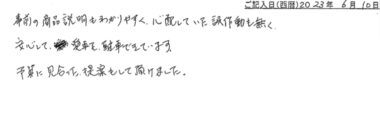 ご記入日(西暦)2023年6月10日
事前の商品説明もわかりやすく、心配していた誤作動も無く、
安心して、愛車を、駐車できています。
予算に見合った提案をして頂けました。